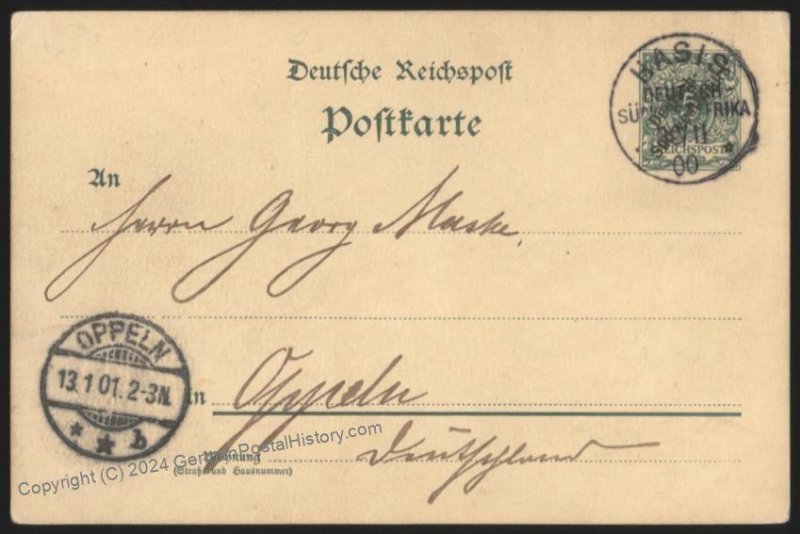 Deutsche Reichspost
Postkarte
HASIS
DEUTSCH
SÜDWESTAFRIKA
11
00
REICHSPOST
An
Herrn Georg Maske.
OPPELN
13.1.01. 2-3N.
* * b
in Oppeln
Deutschland
Wohnung
(Straße und Hausnummer)
Copyright (C) 2024 GermanPostalHistory.com